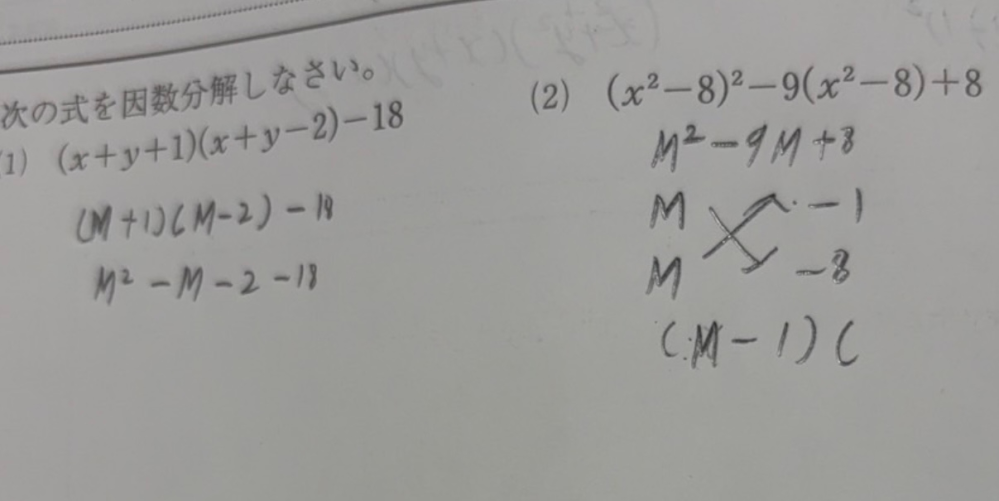 次の式を因数分解しなさい。
(1) (x+y+1)(x+y−2)−18
(M+1)(M−2)−18
M²−M−2−18
(2) (x²−8)²−9(x²−8)+8
M²−9M+8
M −1
M −8
(M−1)(